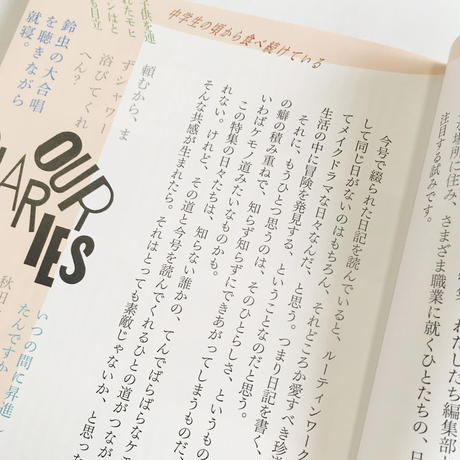 わたしたち編集部
な場所に住み、さまざま職業に就くひとたちの、日
注目する試みです。
中学生の頃から食べ続けている
今号で綴られた日記を読んでいると、ルーティンワーク
して同じ日がないのはもちろん、それどころか愛すべき珍道
てメインドラマな日々なんだ、と思う。つまり日記を書く、
生活の中に冒険を発見する、ということなのだと思う。
それに、もうひとつ思うのは、そのひとらしさ、というもの
の癖の積み重ねで、知らず知らずにできあがってしまうものだ、
いわばケモノ道みたいなものかも。
この特集の日々たちは、知らない誰かの、てんでばらばらなケモ
れない。けれど、その道と今号を読んでくれるひとの道がつなが
そんな共感が生まれたら。それはとっても素敵じゃないか、と思っ
頼むから、ま
ずシャワー
浴びてくれ
へん?
鈴虫の大合唱
を聴きながら
就寝。
OUR
DIARIES
いつの間に昇進
たんですか
秋田